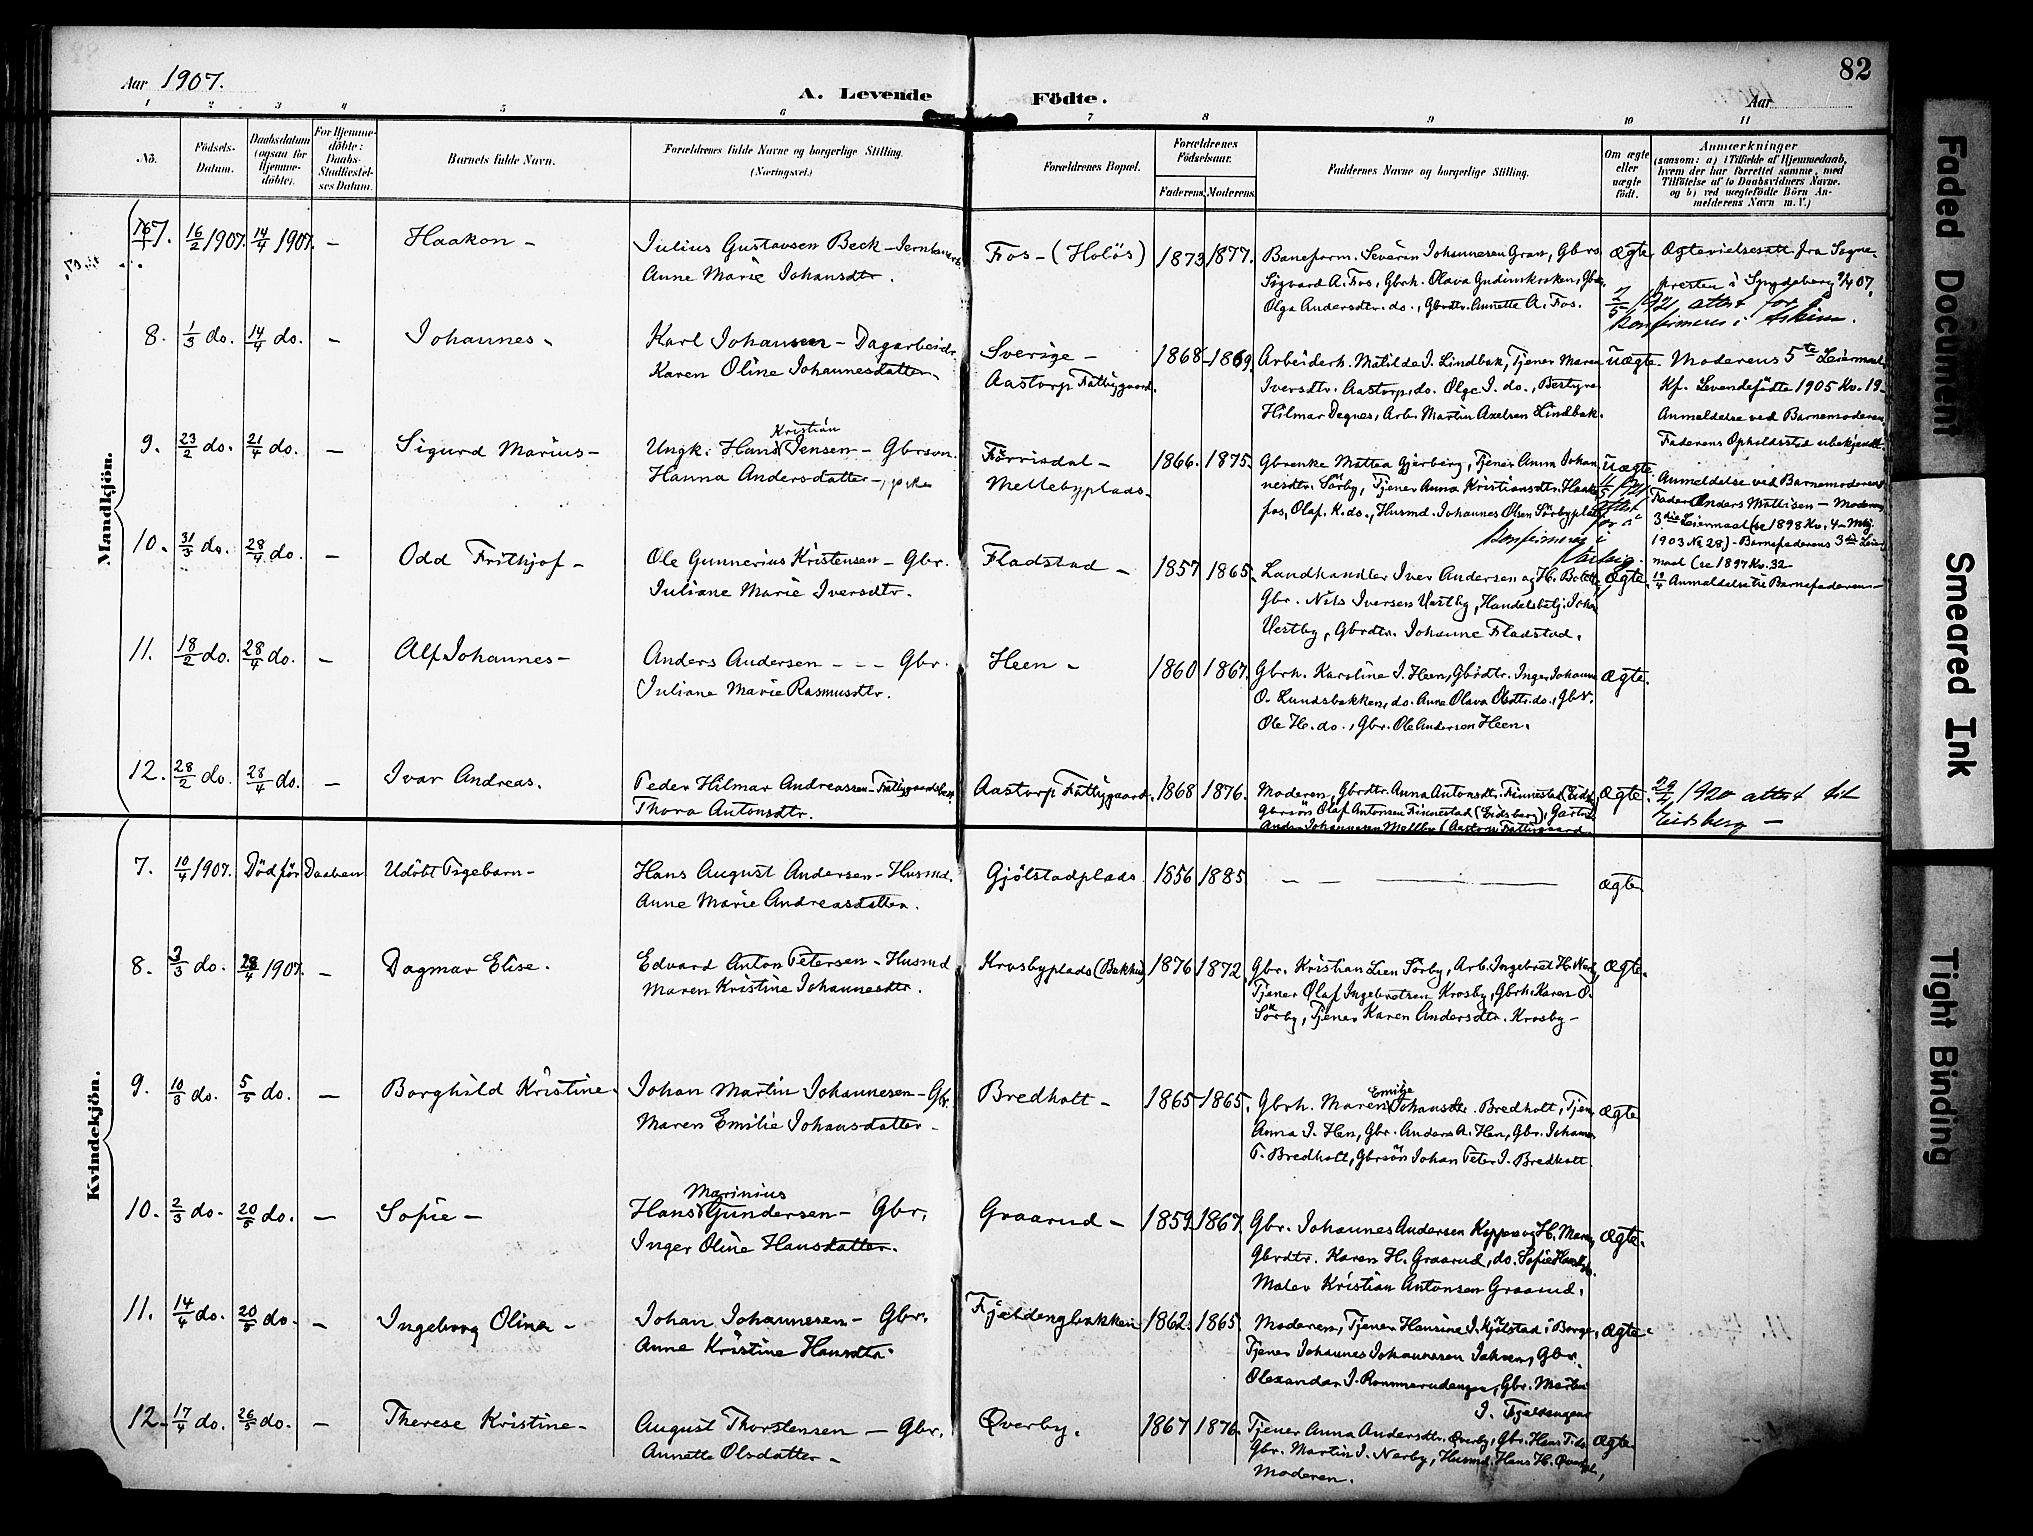 82
Aar 1907.
A. Levende Födte.
Aar
1 2 3 4 5 6 7 8 9 10 11
No.
Födsels-Datum.
Daabsdatum (ogsaa for Hjemme-döbte).
For Hjemme-döbte: Daabs-Stadfæstel-ses Datum.
Barnets fulde Navn.
Forældrenes fulde Navne og borgerlige Stilling. (Næringsvei.)
Forældrenes Bopæl.
Forældrenes Födselsaar.
Faderens. Moderens.
Faddernes Navne og borgerlige Stilling.
Om ægte eller uægte födt.
Anmærkninger
(saasom: a) i Tilfælde af Hjemmedaab,
hvem der har forrettet samme, med
Tilföielse af to Daabsvidners Navne.
og b) ved uægtefödte Börn An-
melderens Navn m. V.)
Mandkjön.
7. 16/2 1907. 14/4 1907. – Haakon –
Julius Gustavsen Beck –
Anne Marie Johansdtr.
Fos – (Holös) 1873 1877.
Baneform. Severin Johannesen Gran, Gbrs.
Sigvard A. Fos, Gbrh. Olava Gudimkroken,
Olga Andersdtr. do., Gbrdtr. Annette A. Fos.
Ægte
Ægtevielsesatt fra Sogne-
presten i Spydeberg 07.
2/5 1921 attest for
konfirmeres i Askim.
8. 1/3 do. 14/4 do. – Johannes –
Karl Johansen – Dagarbeider
Karen Oline Johannesdatter –
Sverige –
Aastorp Fattiggaard. 1868 – 1869.
Arbeiderh. Matilde I. Lindbæk, Tjener Maren
Iversdtr. Aastorp, do. Olge I. do., Bestyrer
Hilmar Degnes, Arb. Martin Axelsen Lindbæk.
Uægte.
Moderens 5te Leiermaal
Kf. Levendefödte 1905 Kv. 19 –
Anmeldelse ved Barnemoderen
Faderens Opholdssted ubekjendt.
9. 23/2 do. 21/4 do. – Sigurd Marius –
Kristian
Ungk. Hans Jensen – Gbrsøn.
Hanna Andersdatter –
Förrisdal –
Mellebyplads. 1866. 1875.
Gbrenke Mattea Gjerberg, Tjener Anna Johan
nesdtr. Sörby, Tjener Anna Kristiansdtr.
fos, Olaf K. do., Husmd. Johannes Olsen Sörbyplads
Uægte
11/5 1921
attest
for å
konfirmeres i
Anmeldelse ved Barnemoderens
Fader Anders Mattisen – Moderens
3die Leiermaal (se 1898 Kv. 4 –
1903 № 28) – Barnefaderens 3die Leier
maal (se 1897 Kv. 32
10. 31/3 do. 28/4 do. – Odd Frithjof –
Ole Gunnerius Kristensen – Gbr.
Juliane Marie Iversdtr.
Fladstad – 1857 1865.
Landhandler Iver Andersen og H.
Gbr. Nils Iversen Vestby, Handelsbetj. Joha
Vestby, Gbrdtr. Johanne Fladstad.
Ægte.
Anmeldelse Barnefaderen –
11. 18/2 do. 28/4 do. – Alf Johannes –
Anders Andersen – – – Gbr.
Juliane Marie Rasmusdtr.
Heen – 1860 1867.
Gbrh. Karoline I. Heen, Gbrdtr. Inger Johanne
O. Lundsbakken, do. Anna Olava Olsdtr. do., Gbr.
Ole H. do., Gbr. Ole Andersen Heen.
Ægte.
12. 28/2 do. 28/4 do. – Ivar Andreas.
Peder Hilmar Andreassen –
Thora Antonsdtr.
Aastorp Fattiggaard. 1868 1876.
Moderen, Gbrdtr. Anna Antonsdtr. Finnestad (Eidsb
Gbrsön Olaf Antonsen Finnestad (Eidsberg), Gartner
Anders Johannesen Melleby (Aastorp Fattiggaard
Ægte.
29/4 1920 attest til
Eidsberg –
Kvindekjön.
7. 10/4 1907. Död för Daaben Udöbt Pigebarn –
Hans August Andersen – Husmd.
Anne Marie Andreasdatter.
Gjölstadplads 1856 1885
– – –
Ægte
8. 3/3 do. 28/4 1907. – Dagmar Elise.
Edvard Anton Petersen – Husmd
Maren Kristine Johannesdtr.
Krosbyplads (Bakken) 1876 1872.
Gbr. Kristian Lien Sörby, Arb. Ingebret H.
Tjener Olaf Ingebretsen Krosby, Gbrh. Karen O.
Sörby, Tjener Karen Andersdtr. Krosby –
Ægte.
9. 10/3 do. 5/5 do. – Borghild Kristine.
Johan Martin Johannesen – Gbr.
Maren Emilie Johansdatter –
Bredholt – 1865 1865.
Emilie
Gbrh. Maren Johansdtr. Bredholt, Tjen.
Anna I. Hen, Gbr. Anders A. Hen, Gbr. Johannes
T. Bredholt, Gbrsön Johan Peter J. Bredholt.
Ægte
10. 2/3 do. 20/5 do. – Sofie –
Marinius
Hans Gundersen – Gbr.
Inger Oline Hansdatter.
Graarud – 1859. 1867.
Gbr. Johannes Andersen Koppen og H. Maren,
Gbrdtr. Karen H. Graarud, do. Sofie
Maler Kristian Antonsen Graarud.
Ægte.
11. 14/4 do. 20/5 do. – Ingeborg Oline –
Johan Johannesen – Gbr.
Anne Kristine Hansdtr.
Fjeldengbakken 1862. 1865.
Moderen, Tjener Hansine I. Kjölstad i Borge,
Tjener Johannes Johannessen Gbr.
Olexander I. Rommerudengen, Gbr. Martin
I. Fjeldengen
Ægte.
12. 17/4 do. 26/5 do. – Therese Kristine –
August Thorstensen – Gbr.
Annette Olsdatter –
Overby. 1867 1876.
Tjener Anna Andersdtr. Overby, Gbr. Hans T. do
Gbr. Martin I. Nerby, Husmd. Hans H.
Moderen.
Ægte.
Faded Document
Smeared Ink
Tight Binding